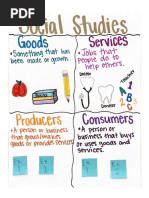 Social Studies
Goods
• Something that has
been made or grown.
Services
• Jobs that
people do to
help others.
Doctor
Dentist
Teachers
A
B
C
1
2
3
Producers
• A person or business
that grows/makes
goods or provides services
Consumers
• A person or
business that buys
or uses goods and
services.